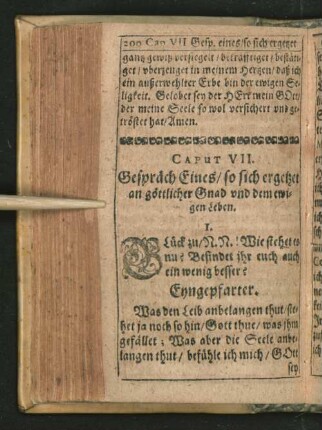 200 Cap VII Gesp. eines/ so sich ergetzet
gantz gewiß versiegelt/ bekräfftiget/ bestät-
get/ vberzeuget in meinem Hertzen/ daß ich
ein außerwehlter Erbe bin der ewigen Se-
ligkeit. Gelobet sey der HErr mein GOtt/
der meine Seele so wol versichert vnd ge-
tröstet hat/ Amen.
CAPUT VII.
Gespräch Eines/ so sich ergetzet
an göttlicher Gnad vnd dem ewi-
gen Leben.
I.
GLück zu/ N.N.! Wie stehet es
nu? Befindet ihr euch auch
ein wenig besser?
Eyngepfarter.
Was den Leib anbelangen thut/ ste-
het ja noch so hin/ Gott thue/ was jhm
gefället; Was aber die Seele anbe-
langen thut/ befühle ich mich/ GOtt
sey